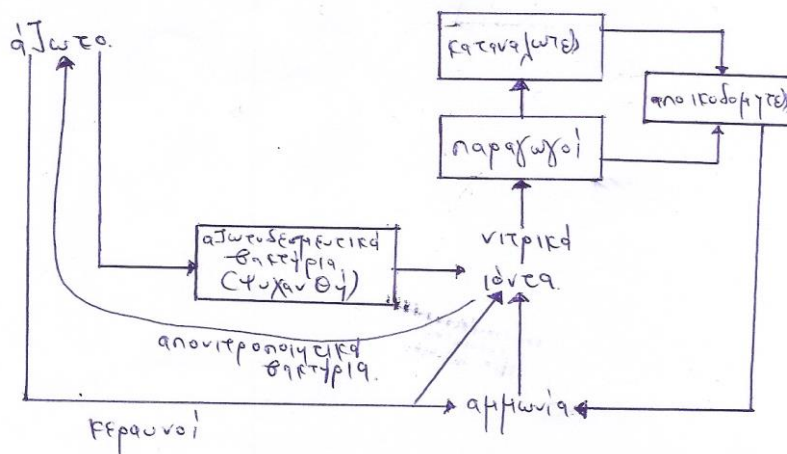 άζωτο
καταναλωτές
αποικοδομητές
παραγωγοί
αζωτοδεσμευτικά
βακτήρια
(ψυχανθή)
νιτρικά
ιόντα
απονιτροποιητικά
βακτήρια
αμμωνία
κεραυνοί